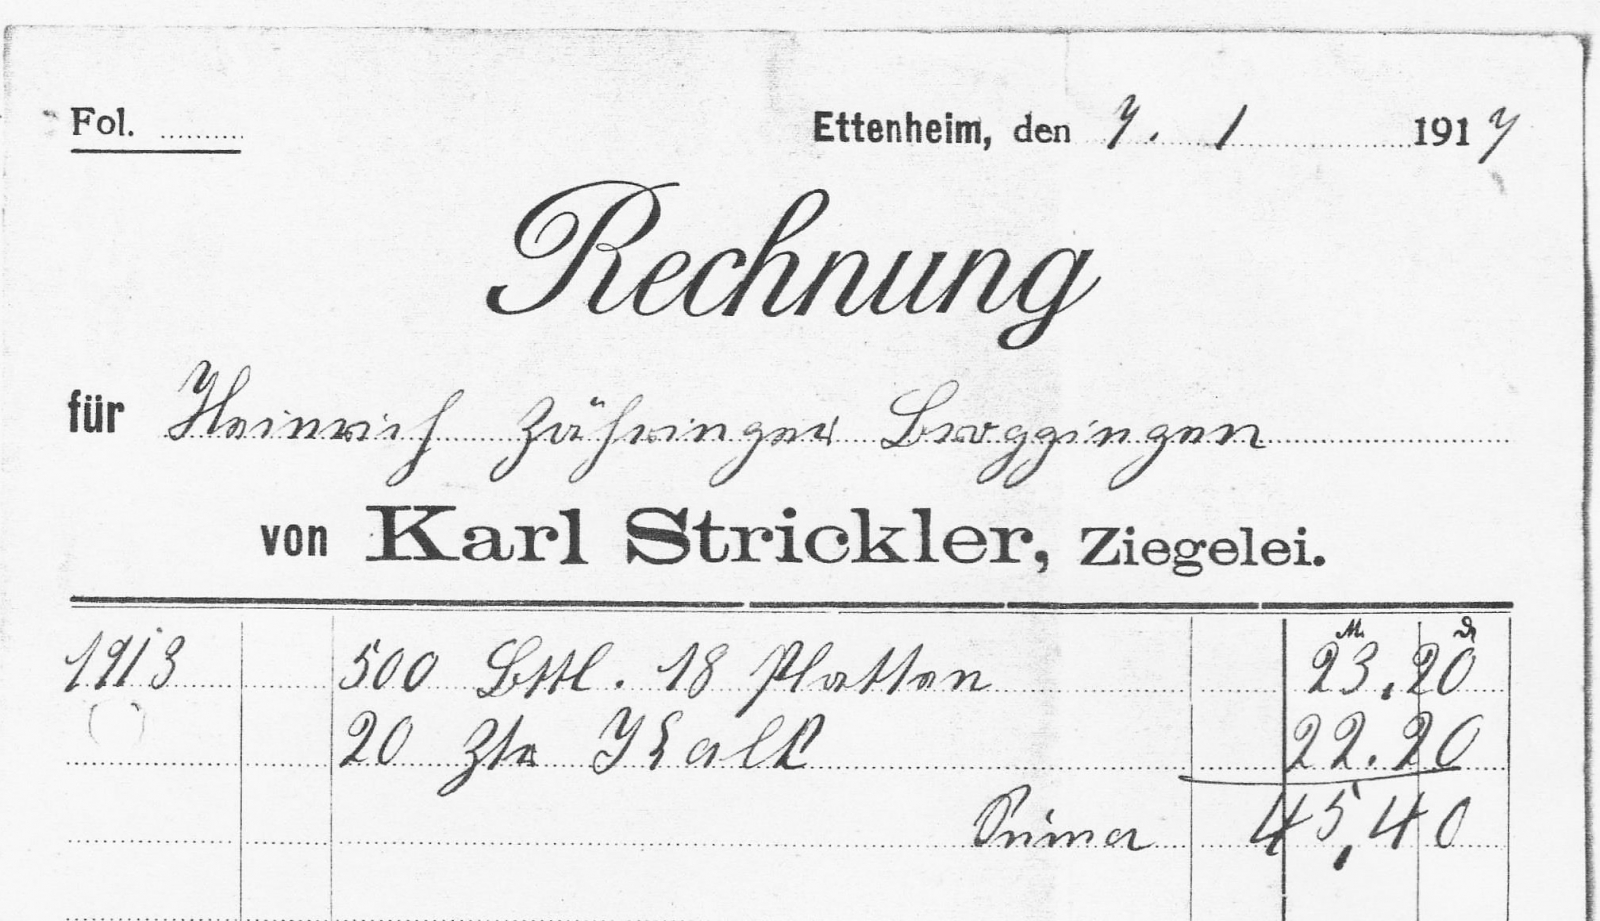 Fol. ..........
Ettenheim, den 7. 1 1917
Rechnung
für Heinrich Zähringer Broggingen
von Karl Strickler, Ziegelei.
M. ₰
1913 500 Bttl. 18 Platten 23.20
20 Ztr Kalk 22.20
Suma 45,40